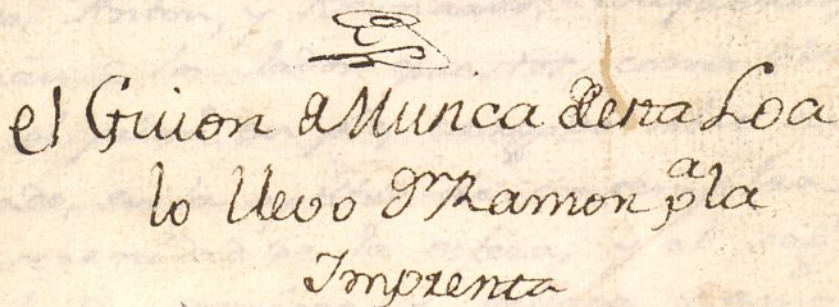 el Guion a Musica desta Loa
lo llevo Dn Ramon pa la
Imprenta